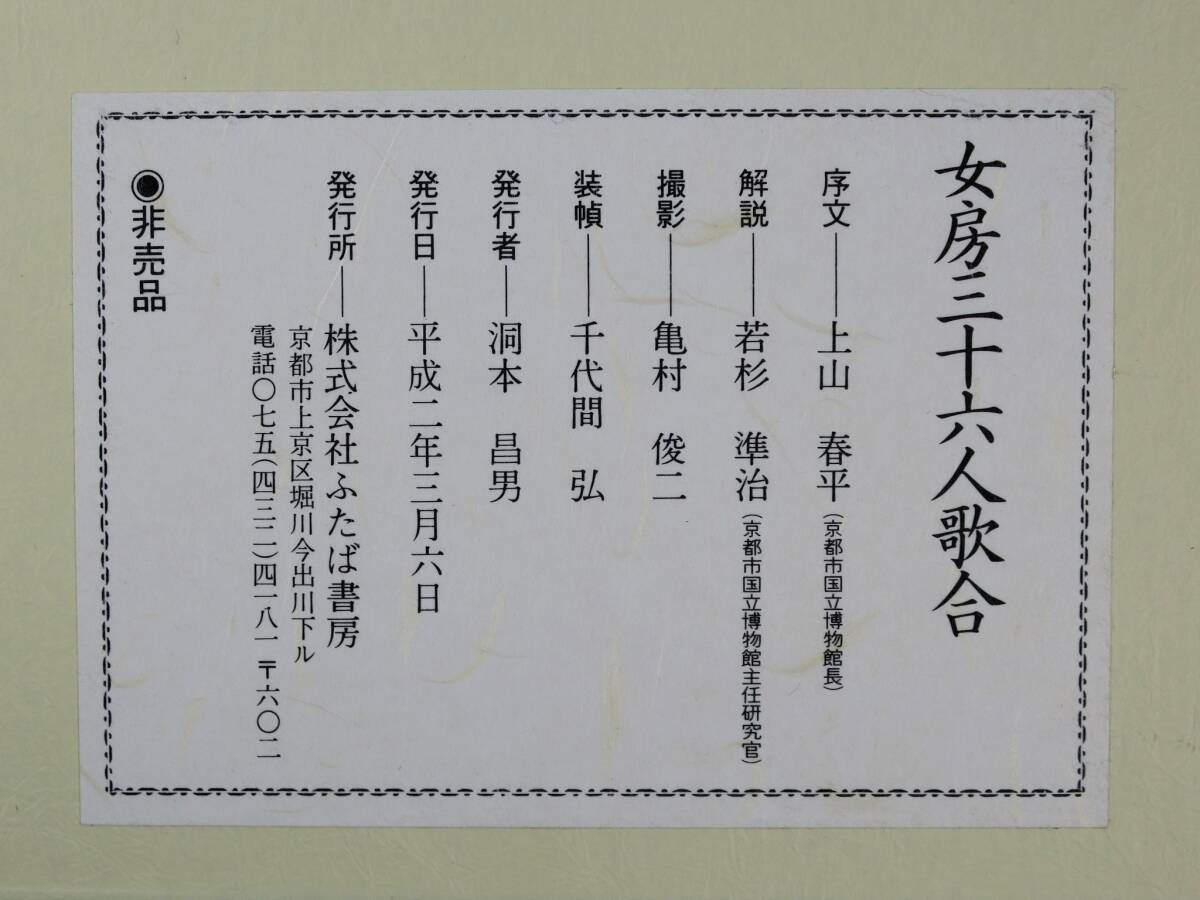 女房三十六人歌合
序文――上山 春平(京都市国立博物館長)
解説――若杉 準治(京都市国立博物館主任研究官)
撮影――亀村 俊二
装幀――千代間 弘
発行者――洞本 昌男
発行日――平成二年三月六日
発行所――株式会社ふたば書房
京都市上京区堀川今出川下ル
電話〇七五(四三二)四一八一 〒六〇二
◉非売品